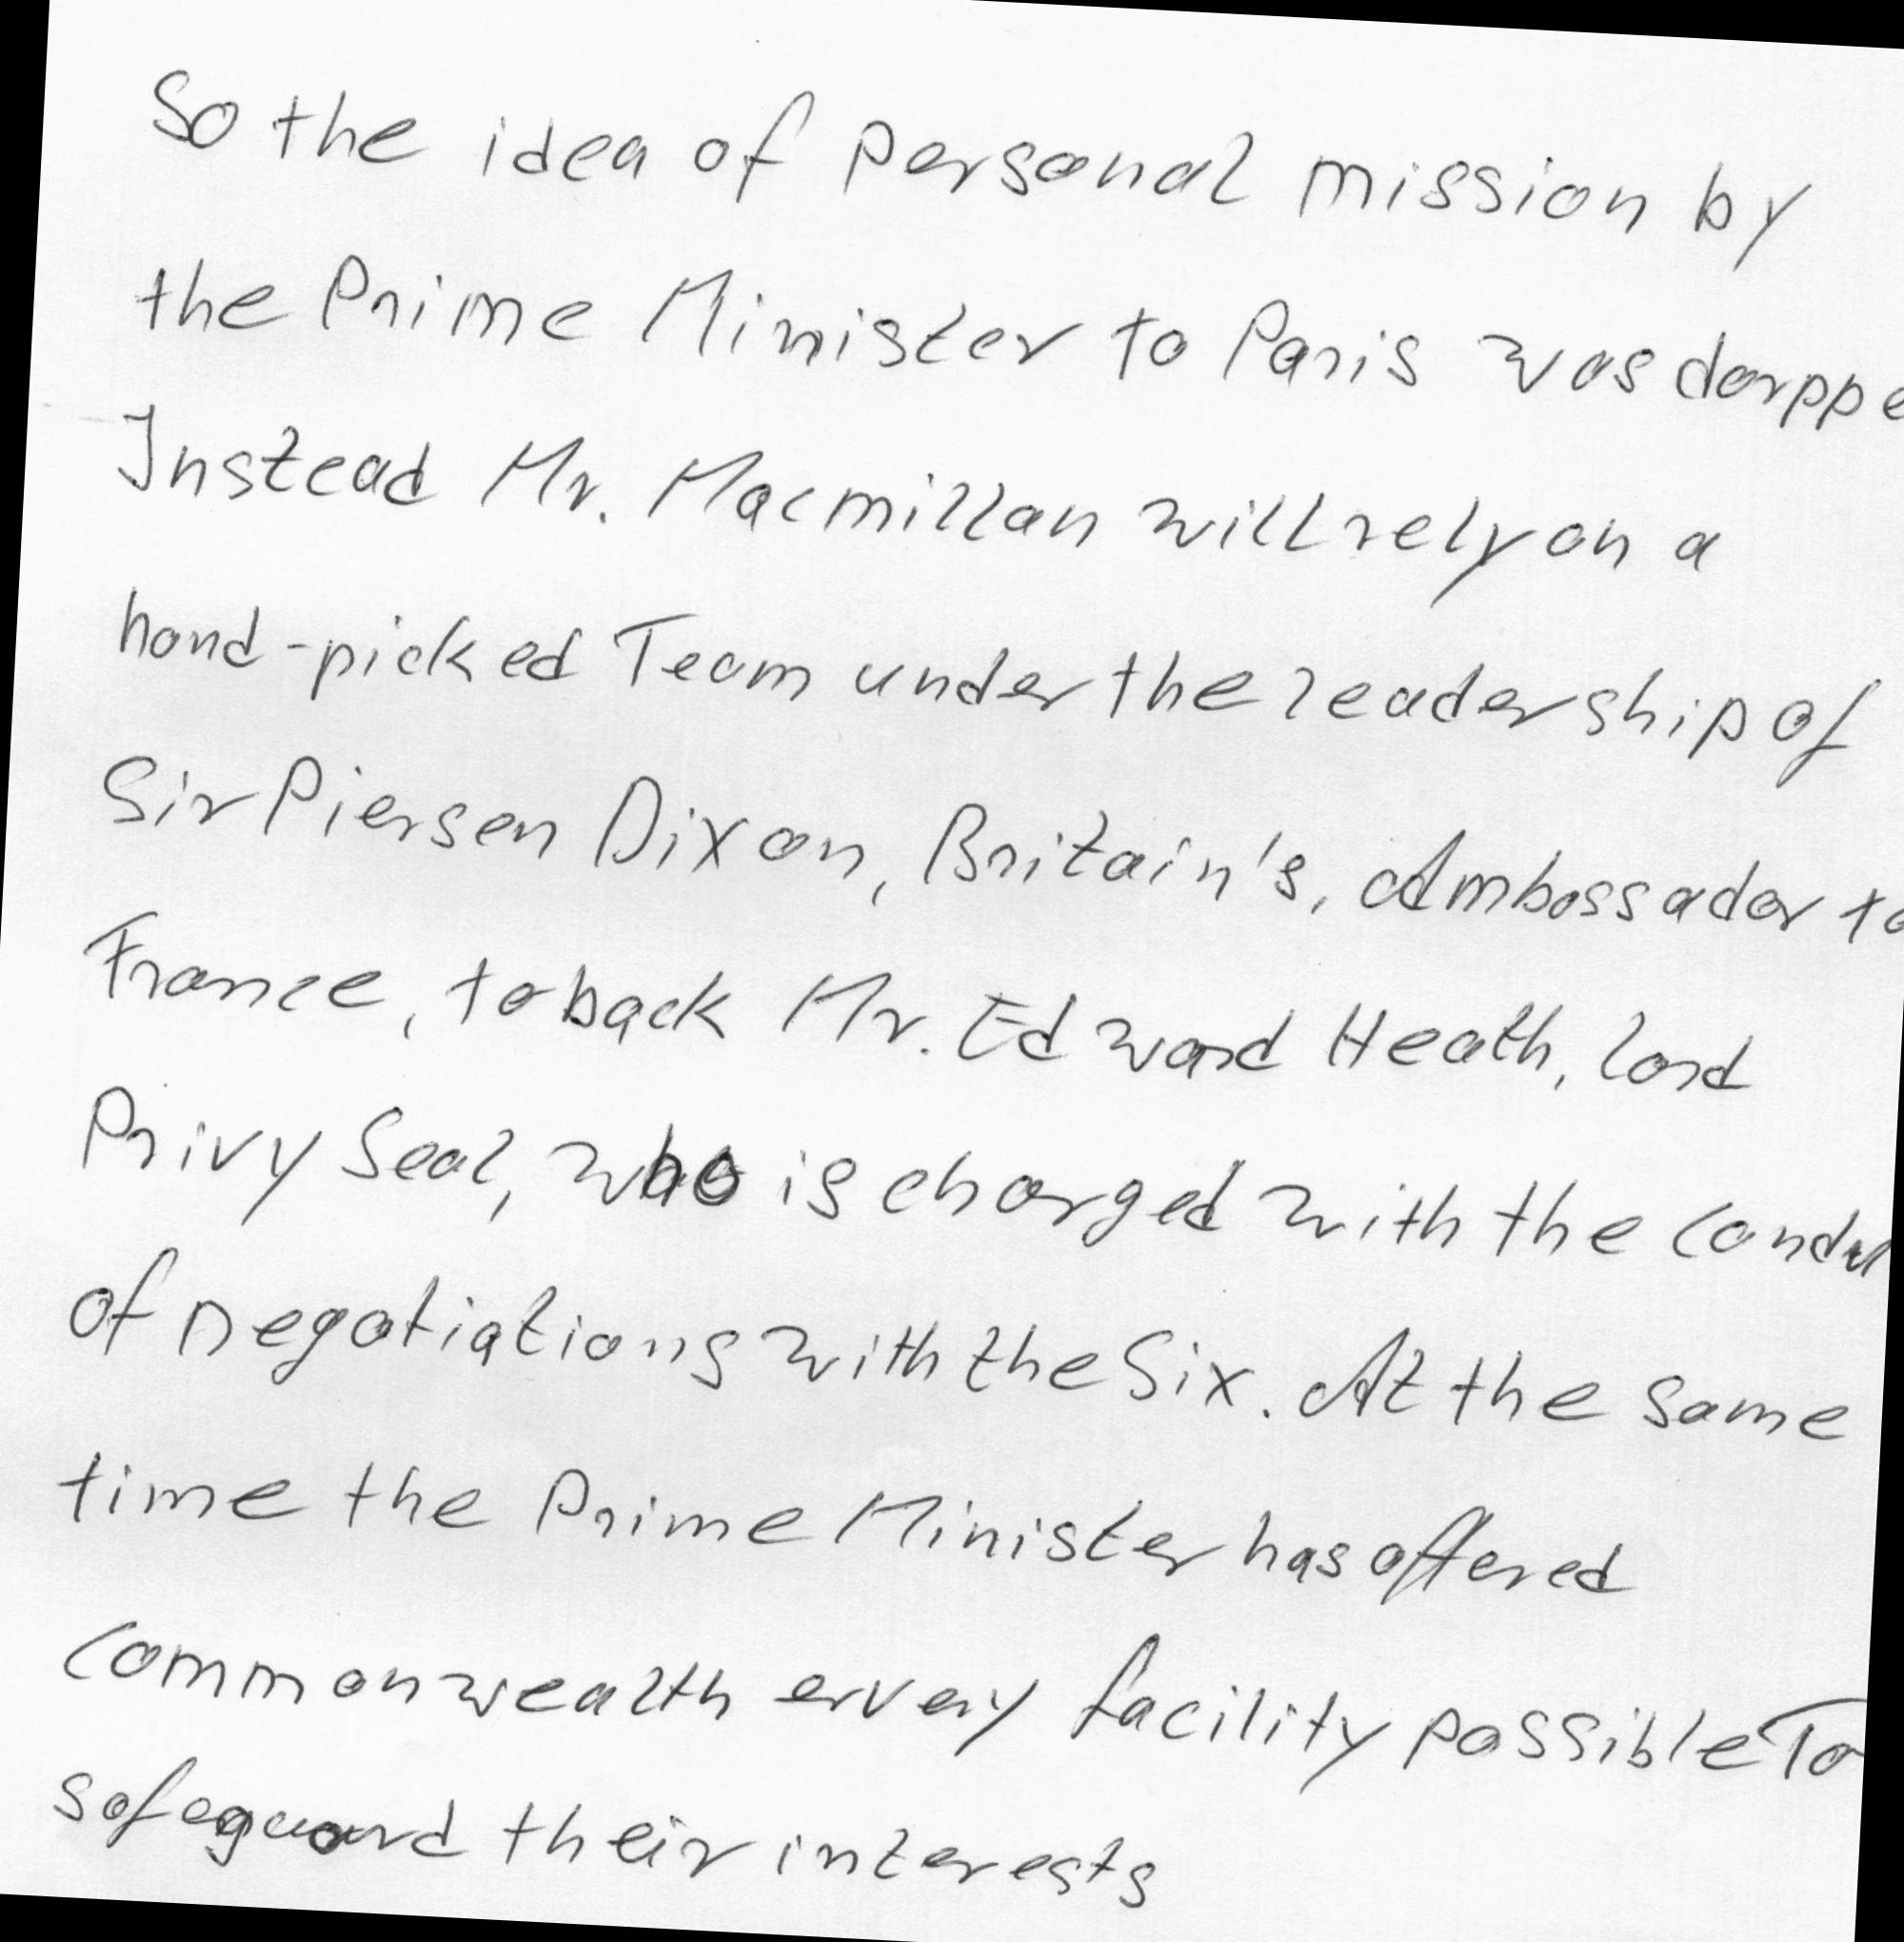 So the idea of personal mission by
the Prime Minister to Paris was dorppe
Instead Mr. Macmillan will rely on a
hand-picked Team under the leadership of
Sir Piersen Dixon, Britain's, Ambassador to
France, to back Mr. Edward Heath, lord
Privy Seal, who is charged with the condu
of negotiations with the Six. At the same
time the Prime Minister has offered
Commonwealth ervery facility possible To
safeguard their interests